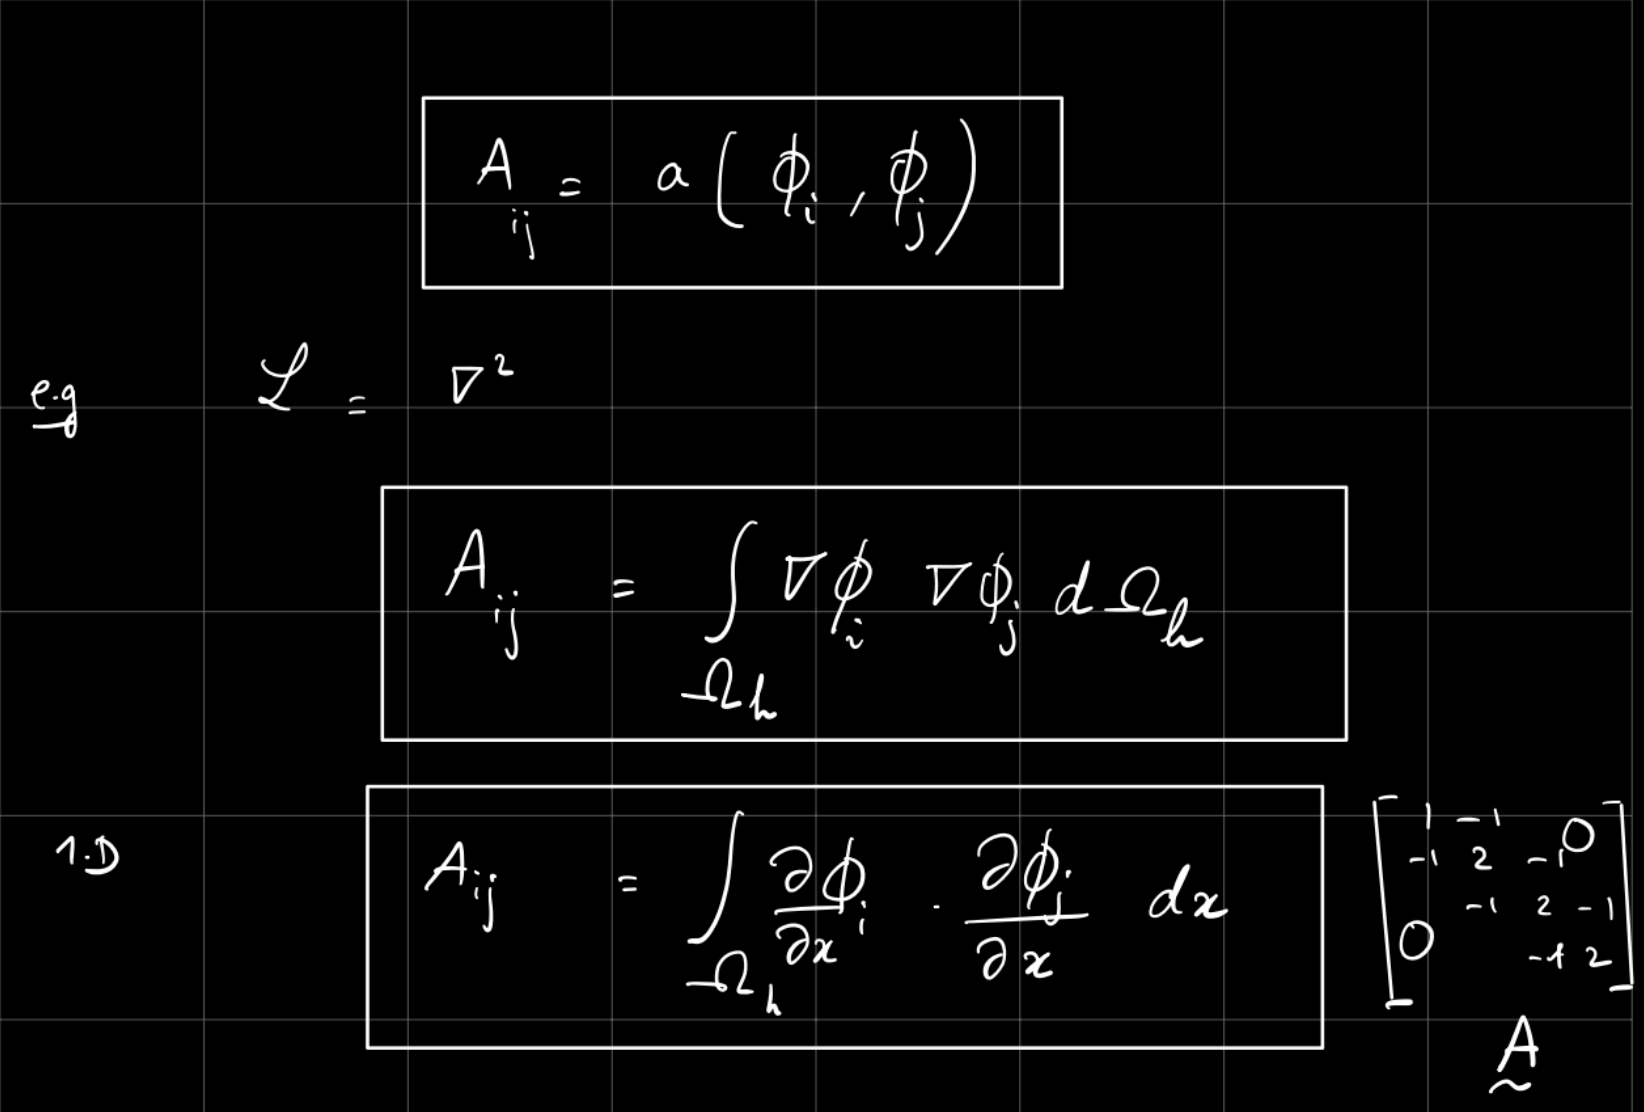 A_{ij} = a ( ϕ_i , ϕ_j )
e.g ℒ = ∇²
A_{ij} = ∫_{Ω_h} ∇ϕ_i ∇ϕ_j dΩ_h
1.D A_{ij} = ∫_{Ω_h} ∂ϕ_i/∂x · ∂ϕ_j/∂x dx
1 -1 0
-1 2 -1
-1 2 -1
0 -1 2
A
~